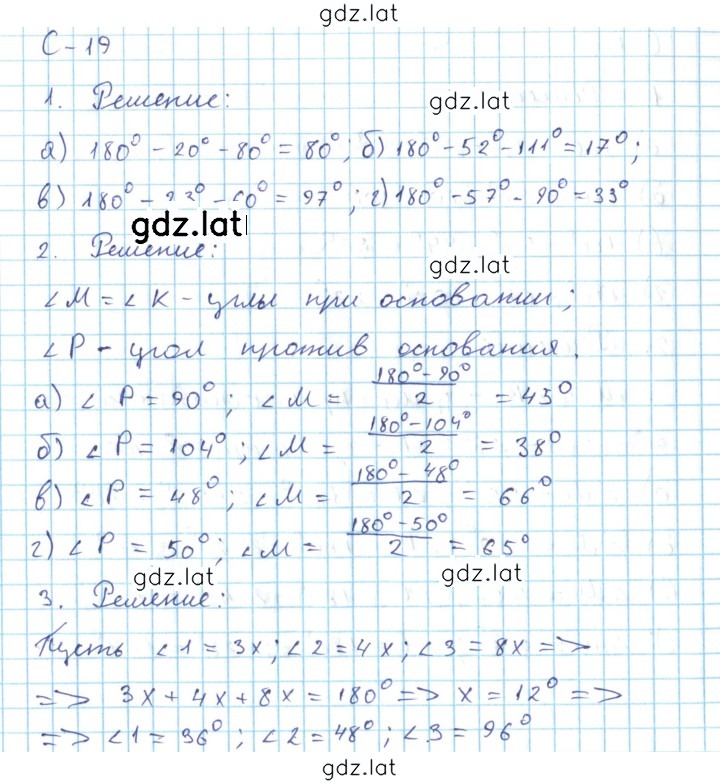 gdz.lat
С-19
1. Решение:
gdz.lat
а) 180° - 20° - 80° = 80°; б) 180° - 52° - 111° = 17°;
в) 180° - 23° - 60° = 97°; г) 180° - 57° - 90° = 33°
gdz.lat
2. Решение:
gdz.lat
∠M = ∠K - углы при основании;
∠P - угол против основания.
а) ∠P = 90°; ∠M = (180° - 90°)/2 = 45°
б) ∠P = 104°; ∠M = (180° - 104°)/2 = 38°
в) ∠P = 48°; ∠M = (180° - 48°)/2 = 66°
г) ∠P = 50°; ∠M = (180° - 50°)/2 = 65°
gdz.lat
gdz.lat
3. Решение:
Пусть ∠1 = 3x; ∠2 = 4x; ∠3 = 8x =>
=> 3x + 4x + 8x = 180° => x = 12° =>
=> ∠1 = 36°; ∠2 = 48°; ∠3 = 96°
gdz.lat